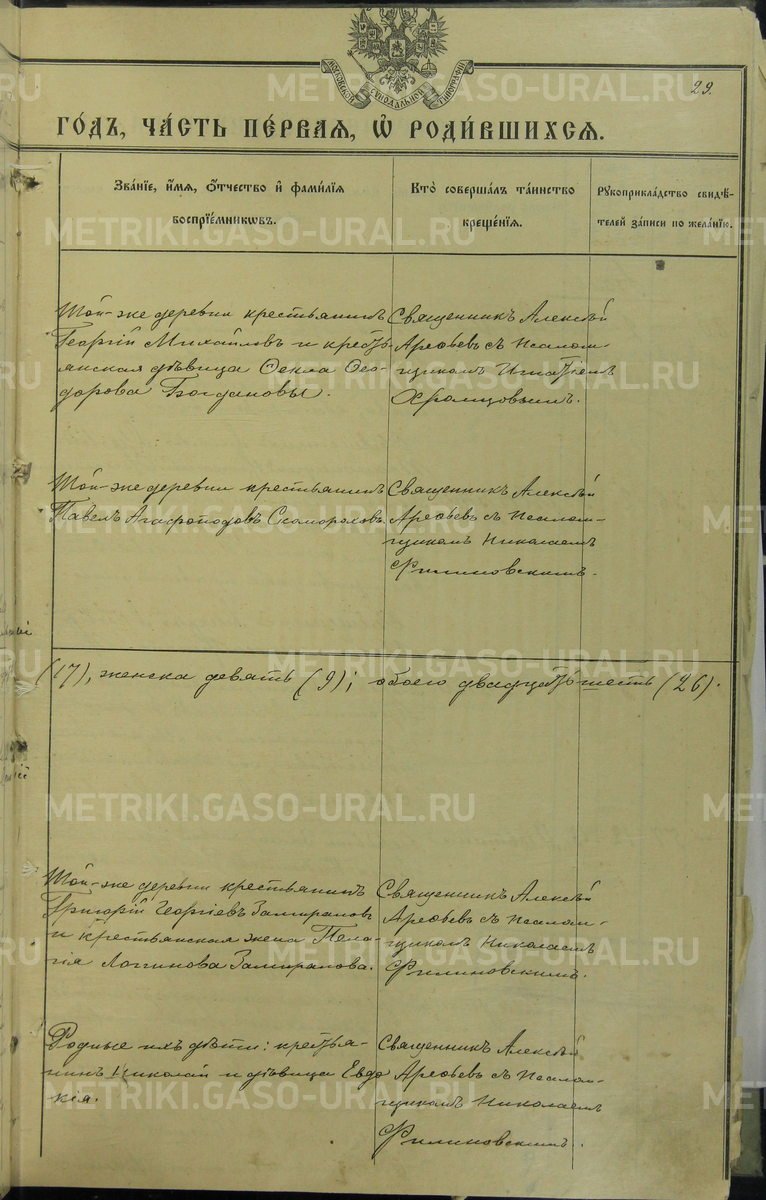 МОСКОВСКОЙ СѴНОДАЛЬНОЙ ТИПОГРАФІИ
29.
ГО́ДЪ, ЧА́СТЬ ПЕ́РВАЯ, Ѡ҆ РОДИ́ВШИХСЯ.
Зва́нїе, и҆́мя, о҆́тчество и҆ фами́лїя
воспрїе́мникѡвъ.
Кто̀ соверша́лъ та́инство
креще́нїя.
Рꙋкоприкла́дство свидѣ́-
телей за́писи по жела́нїю.
Той-же деревни крестьянинъ
Георгій Михайловъ и кресть-
янская дѣвица Ѳекла Ѳео-
дорова Богдановы.
Священникъ Алексѣй
Арефьевъ съ Псалом-
щикомъ Игнатіемъ
Хромцовымъ.
Той-же деревни крестьянинъ
Павелъ Агафоподовъ Скомороховъ.
Священникъ Алексѣй
Арефьевъ съ Псалом-
щикомъ Николаемъ
Филиновскимъ.
(17), женска девять (9); обоего двадцать шесть (26).
Той-же деревни крестьянинъ
Григорій Георгіевъ Замираловъ
и крестьянская жена Пела-
гія Логинова Замиралова.
Священникъ Алексѣй
Арефьевъ съ Псалом-
щикомъ Николаемъ
Филиновскимъ.
Родные ихъ дѣти: крестья-
нинъ Николай и дѣвица Евдо
кія.
Священникъ Алексѣй
Арефьевъ съ Псалом-
щикомъ Николаемъ
Филиновскимъ.
METRIKI.GASO-URAL.RU